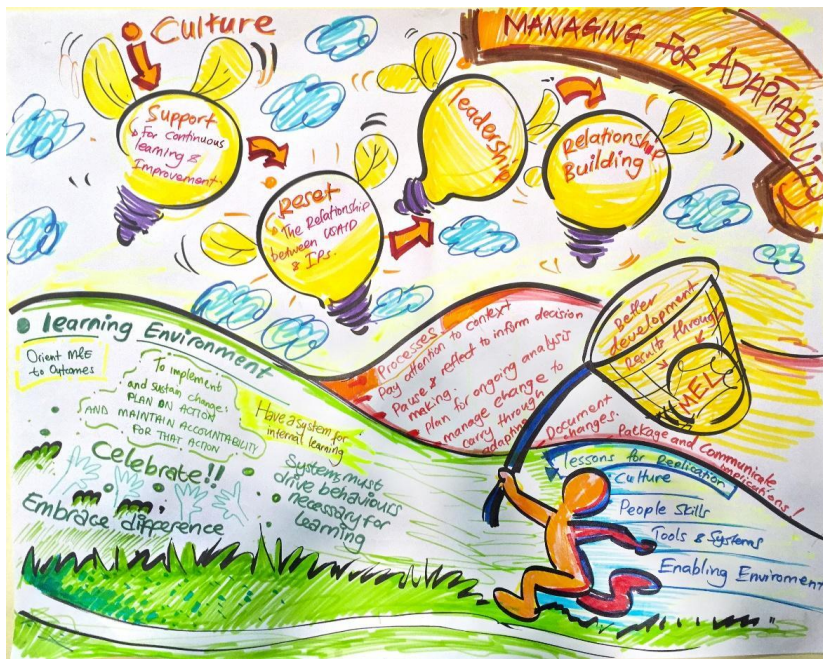 MANAGING FOR ADAPTABILITY
Culture
Support
For Continuous
learning &
Improvement
Reset
The Relationship
between USAID
& IPs.
leadership
Relationship
Building
learning Environment
Orient M&E
to Outcomes
To implement
and sustain changes
PLAN ON ACTION
AND MAINTAIN ACCOUNTABILITY
FOR THAT ACTION
Have a system for
internal learning
Celebrate!!
Embrace difference
Systems must
drive behaviours
necessary for
learning
Processes
Pay attention to context
Pause & reflect to inform decision
making
plan for ongoing analysis
manage change to
carry through
adapting
Document
changes
Package and Communicate
implications!
Better
development
Results through
MELC
lessons for Replication
Culture
People Skills
Tools & Systems
Enabling Enviroment